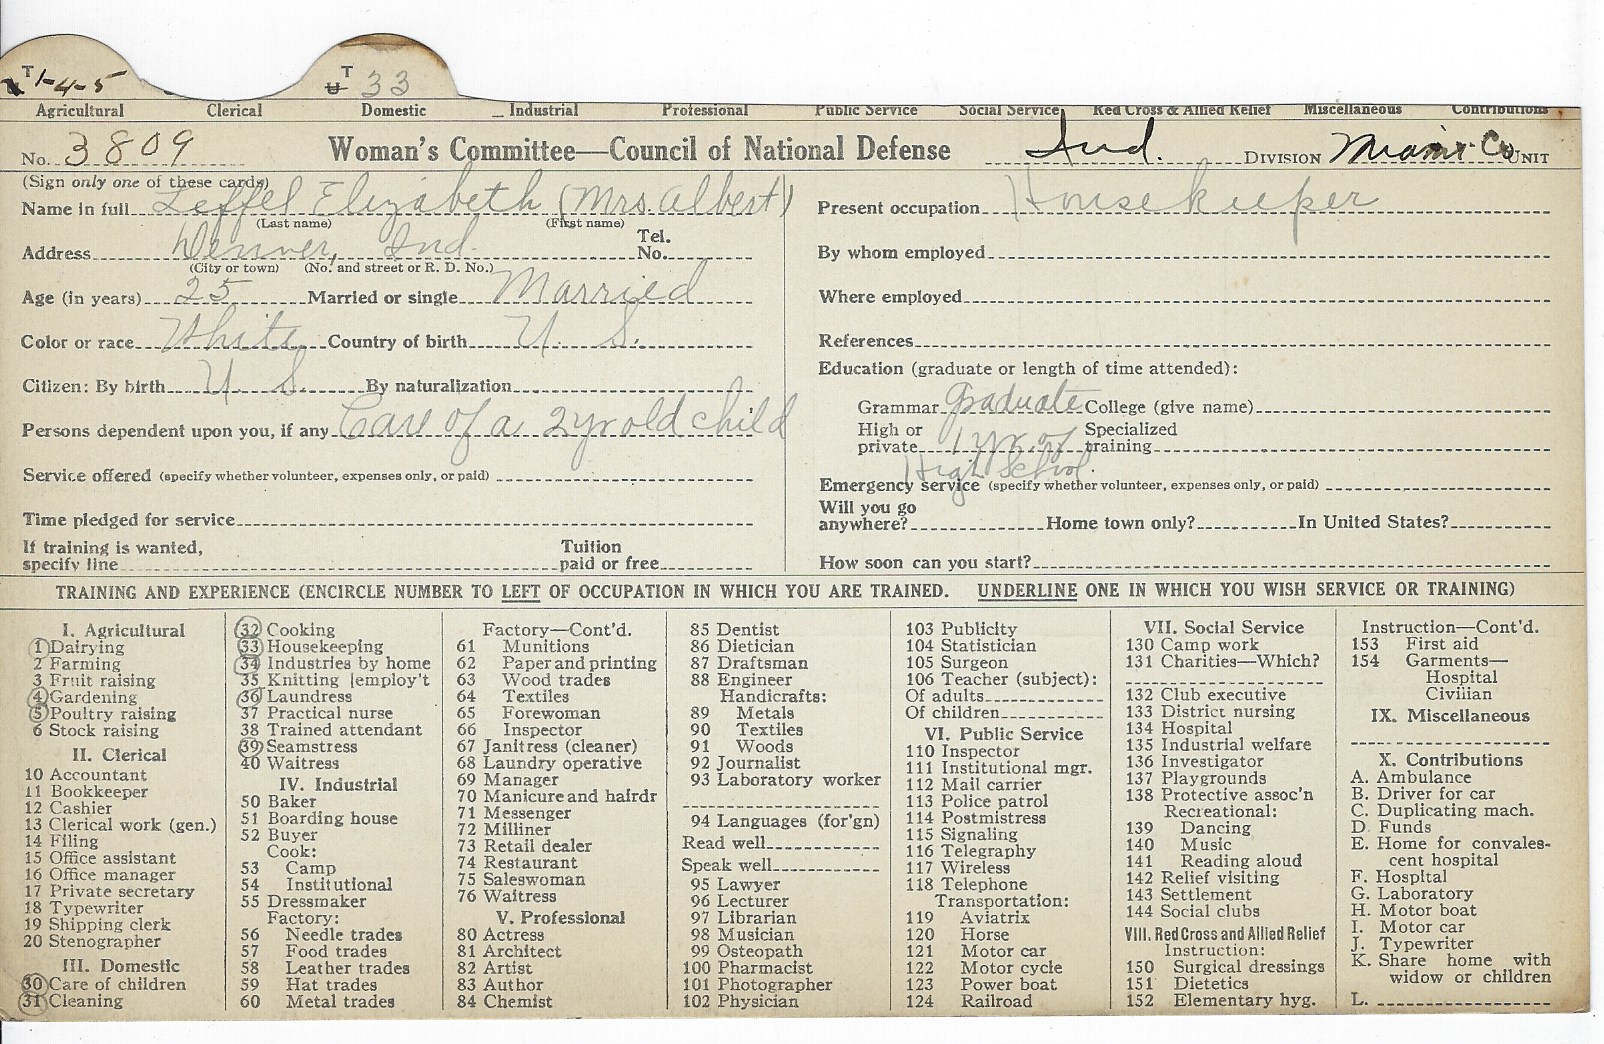 T 1-4-5
T 33
Agricultural Clerical Domestic Industrial Professional Public Service Social Service Red Cross & Allied Relief Miscellaneous Contributions
No. 3809 Woman's Committee—Council of National Defense Ind. DIVISION Miami Co UNIT
(Sign only one of these cards)
Name in full Leffel Elizabeth (Mrs. Albert)
(Last name) (First name)
Address Denver, Ind. Tel. No.
(City or town) (No. and street or R. D. No.)
Age (in years) 25 Married or single Married
Color or race White Country of birth U. S.
Citizen: By birth U. S. By naturalization
Persons dependent upon you, if any Care of a 2 yr old child
Service offered (specify whether volunteer, expenses only, or paid)
Time pledged for service
If training is wanted, specify line Tuition paid or free
Present occupation Housekeeper
By whom employed
Where employed
References
Education (graduate or length of time attended):
Grammar Graduate College (give name)
High or private 1 yr. of High School. Specialized training
Emergency service (specify whether volunteer, expenses only, or paid)
Will you go anywhere? Home town only? In United States?
How soon can you start?
TRAINING AND EXPERIENCE (ENCIRCLE NUMBER TO LEFT OF OCCUPATION IN WHICH YOU ARE TRAINED. UNDERLINE ONE IN WHICH YOU WISH SERVICE OR TRAINING)
I. Agricultural
1 Dairying
2 Farming
3 Fruit raising
4 Gardening
5 Poultry raising
6 Stock raising
II. Clerical
10 Accountant
11 Bookkeeper
12 Cashier
13 Clerical work (gen.)
14 Filing
15 Office assistant
16 Office manager
17 Private secretary
18 Typewriter
19 Shipping clerk
20 Stenographer
III. Domestic
30 Care of children
31 Cleaning
32 Cooking
33 Housekeeping
34 Industries by home
35 Knitting [employ't
36 Laundress
37 Practical nurse
38 Trained attendant
39 Seamstress
40 Waitress
IV. Industrial
50 Baker
51 Boarding house
52 Buyer
Cook:
53 Camp
54 Institutional
55 Dressmaker
Factory:
56 Needle trades
57 Food trades
58 Leather trades
59 Hat trades
60 Metal trades
Factory—Cont'd.
61 Munitions
62 Paper and printing
63 Wood trades
64 Textiles
65 Forewoman
66 Inspector
67 Janitress (cleaner)
68 Laundry operative
69 Manager
70 Manicure and hairdr
71 Messenger
72 Milliner
73 Retail dealer
74 Restaurant
75 Saleswoman
76 Waitress
V. Professional
80 Actress
81 Architect
82 Artist
83 Author
84 Chemist
85 Dentist
86 Dietician
87 Draftsman
88 Engineer
Handicrafts:
89 Metals
90 Textiles
91 Woods
92 Journalist
93 Laboratory worker
94 Languages (for'gn)
Read well
Speak well
95 Lawyer
96 Lecturer
97 Librarian
98 Musician
99 Osteopath
100 Pharmacist
101 Photographer
102 Physician
103 Publicity
104 Statistician
105 Surgeon
106 Teacher (subject):
Of adults
Of children
VI. Public Service
110 Inspector
111 Institutional mgr.
112 Mail carrier
113 Police patrol
114 Postmistress
115 Signaling
116 Telegraphy
117 Wireless
118 Telephone
Transportation:
119 Aviatrix
120 Horse
121 Motor car
122 Motor cycle
123 Power boat
124 Railroad
VII. Social Service
130 Camp work
131 Charities—Which?
132 Club executive
133 District nursing
134 Hospital
135 Industrial welfare
136 Investigator
137 Playgrounds
138 Protective assoc'n
Recreational:
139 Dancing
140 Music
141 Reading aloud
142 Relief visiting
143 Settlement
144 Social clubs
VIII. Red Cross and Allied Relief
Instruction:
150 Surgical dressings
151 Dietetics
152 Elementary hyg.
Instruction—Cont'd.
153 First aid
154 Garments—
Hospital
Civilian
IX. Miscellaneous
X. Contributions
A. Ambulance
B. Driver for car
C. Duplicating mach.
D. Funds
E. Home for convales-
cent hospital
F. Hospital
G. Laboratory
H. Motor boat
I. Motor car
J. Typewriter
K. Share home with
widow or children
L.